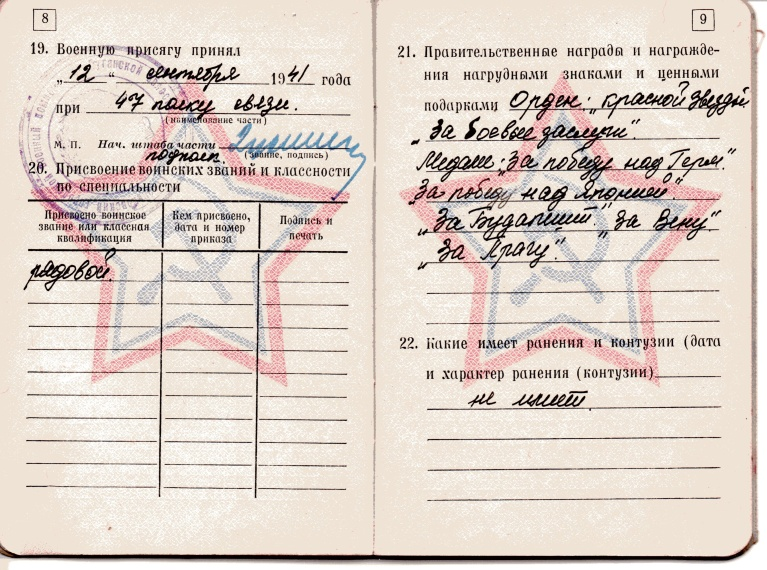 8
19. Военную присягу принял
„12“ сентября 1941 года
при 47 полку связи.
(наименование части)
М. П. Нач. штаба части
подполк. (звание, подпись)
20. Присвоение воинских званий и классности
по специальности
Присвоено воинское звание или классная квалификация
Кем присвоено, дата и номер приказа
Подпись и печать
рядовой.
9
21. Правительственные награды и награжде-
ния нагрудными знаками и ценными
подарками Орден: „Красной Звезды
„За боевые заслуги“.
Медали: „За победу над Герм“.
„За победу над Японией“
„За Будапешт“. „За Вену“
„За Прагу“.
22. Какие имеет ранения и контузии (дата
и характер ранения (контузии)
не имеет